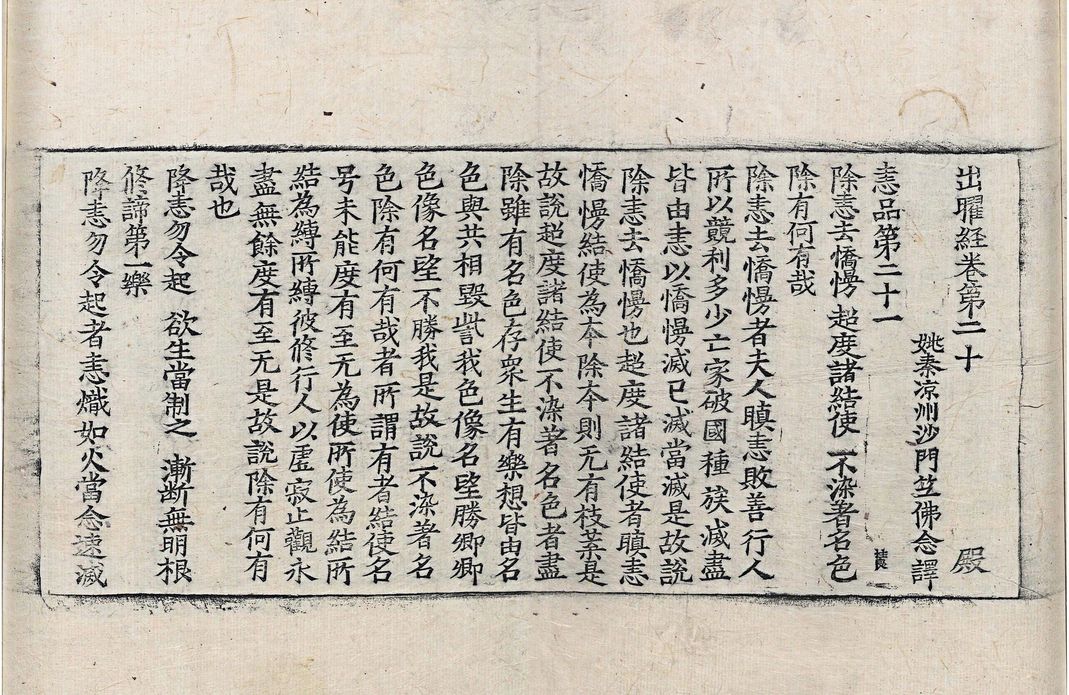 出曜經卷第二十 殿
姚秦涼州沙門竺佛念譯
恚品第二十一
除恚去憍慢 超度諸結使 不染著名色
除有何有哉
除恚去憍慢者夫人瞋恚敗善行人
所以競利多少亡家破國種族滅盡
皆由恚以憍慢滅已滅當滅是故說
除恚去憍慢也超度諸結使者瞋恚
憍慢結使為本除本則无有枝葉是
故說超度諸結使不染著名色者盡
除雖有名色存衆生有樂想皆由名
色與共相毀呰我色像名望勝卿卿
色像名望不勝我是故說不染著名
色除有何有哉者所謂有者結使名
号未能度有至无為使所使為結所
結為縛所縛彼修行人以虛寂止觀永
盡無餘度有至无是故說除有何有
哉也
降恚勿令起 欲生當制之 漸断無明根
修諦第一樂
降恚勿令起者恚熾如火當念速滅